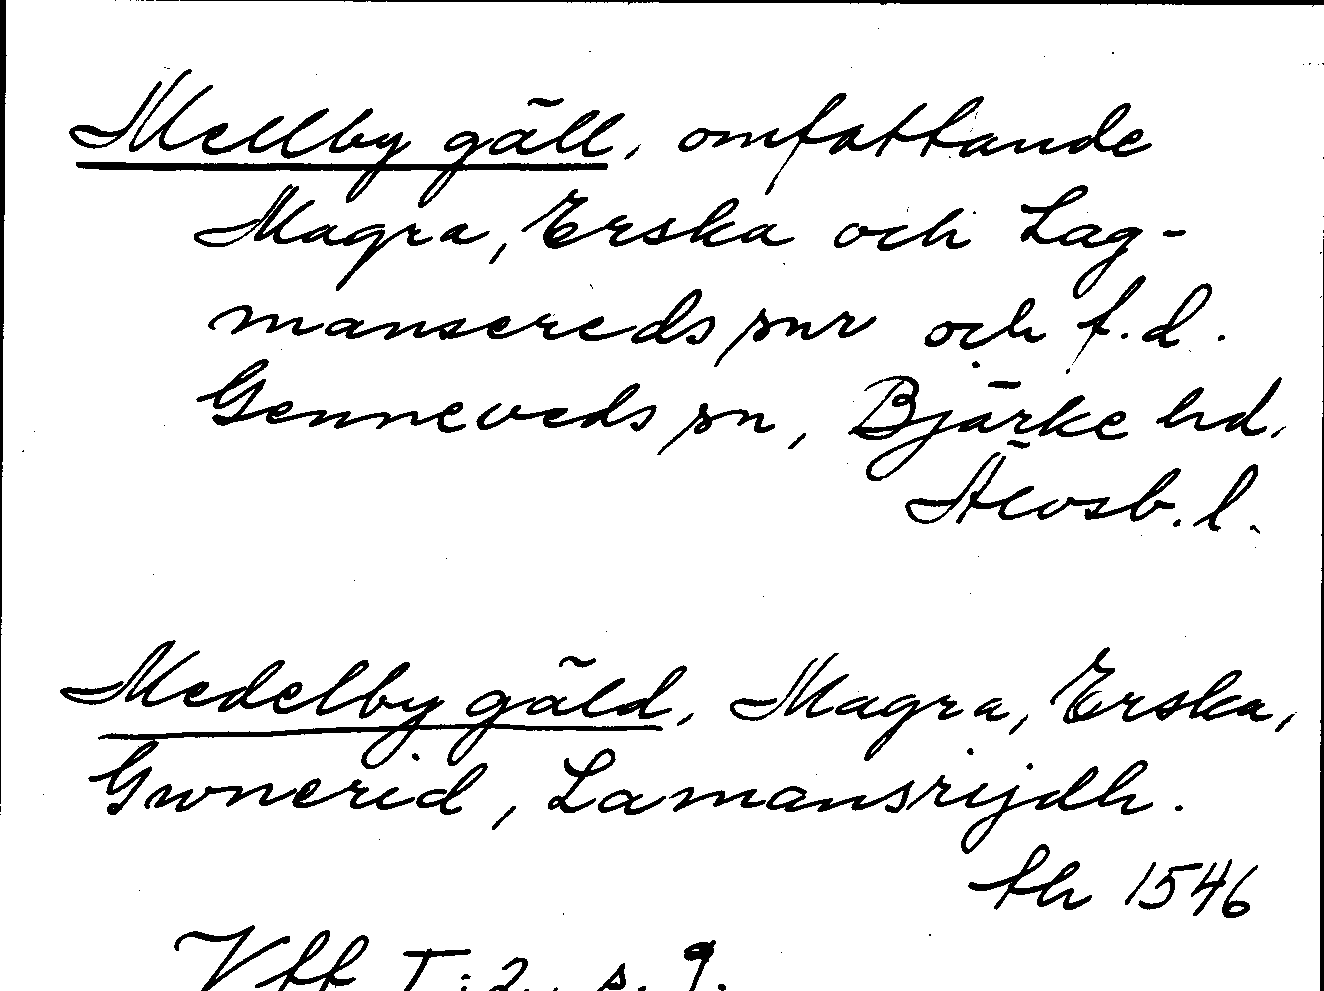 Mellby gäll, omfattande
Magra, Erska och Lag-
mansereds snr och f.d.
Genneveds sn, Bjärke hd.
Älvsb. l.
Medelby gäld, Magra, Erska,
Gwnerid, Lamansrijdh.
th 1546
Vff I:2, s. 9.